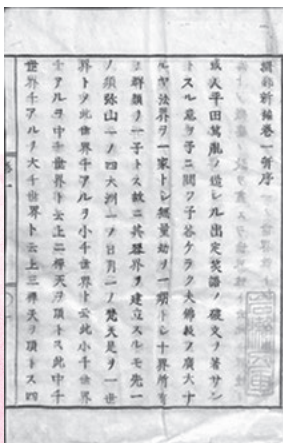 摧邪新論巻一並序
或人平田篤胤ノ造レル出定笑語ノ破文ヲ著サン
トスル意ヲ予ニ問フ予答ケラク夫佛教ノ廣大ナ
ルヤ法界ヲ一家トシ無量劫ヲ一期トシ十界所有
ノ群類ヲ一子トス故ニ其器界ヲ建立スルモ先一
ノ須弥山一ノ四大洲一ノ日月一ノ梵天是ヲ一世
界トシ此世界千アルヲ小千世界ト云此小千世界
千アルヲ中千世界ト云上二禅天ヲ頂トス此中千
世界千アルヲ大千世界ト云上三禅天ヲ頂トス四